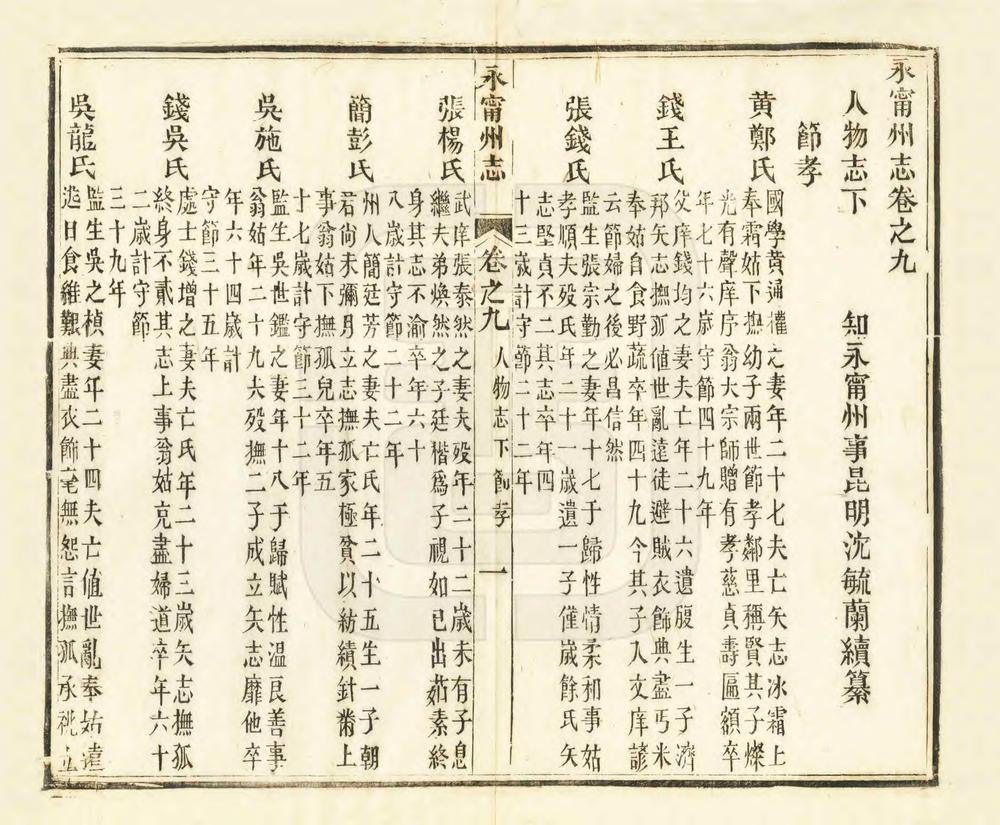 永甯州志卷之九
人物志下　知永甯州事昆明沈毓蘭續纂
節孝
黄鄭氏
國學黄通權之妻年二十七夫亡矢志冰霜上
奉霜姑下撫幼子兩世節孝鄰里稱賢其子燦
光有聲庠序翁大宗師贈有孝慈貞壽匾額卒
年七十六歲守節四十九年
錢王氏
文庠錢均之妻夫亡年二十六遺腹生一子濟
邦矢志撫孤値世亂遠徒避賊衣飾典盡丐米
奉姑自食野蔬卒年四十九今其子入文庠諺
云節婦之後必昌信然
張錢氏
監生張宗勤之妻年十七于歸性情柔和事姑
孝順夫殁氏年二十一歲遺一子僅歲餘氏矢
志堅貞不二其志卒年四
十三歲計守節二十二年
永甯州志　卷之九　人物志下　節孝　一
張楊氏
武庠張泰然之妻夫殁年二十二歲未有子息
繼夫弟煥然之子廷楷爲子視如已出茹素終
身其志不渝卒年六十
八歲計守節二十二年
簡彭氏
州人簡廷芳之妻夫亡氏年二十五生一子朝
君尙未彌月立志撫孤家極貧以紡績針黹上
事翁姑下撫孤兒卒年五
十七歲計守節三十二年
吳施氏
監生吳世鑑之妻年十八于歸賦性温良善事
翁姑年二十九夫殁撫二子成立矢志靡他卒
年六十四歲計
守節三十五年
錢吳氏
處士錢增之妻夫亡氏年二十三歲矢志撫孤
終身不貳其志上事翁姑克盡婦道卒年六十
二歲計守節
三十九年
吳龍氏
監生吳之楨妻年二十四夫亡値世亂奉姑遠
逃日食維艱典盡衣飾毫無怨言撫孤承祧